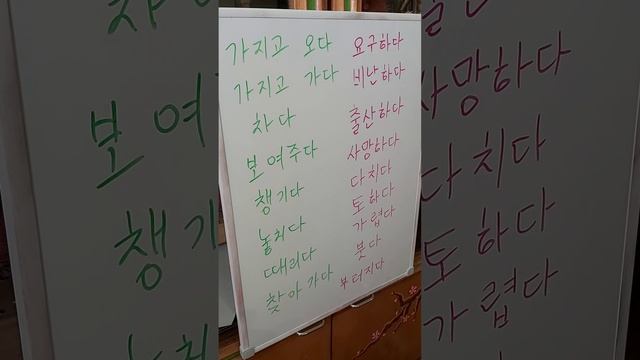 가지고 오다
가지고 가다
차다
보여주다
챙기다
놓치다
때리다
찾아가다
요구하다
비난하다
출산하다
사망하다
다치다
토하다
가렵다
붓다
부러지다